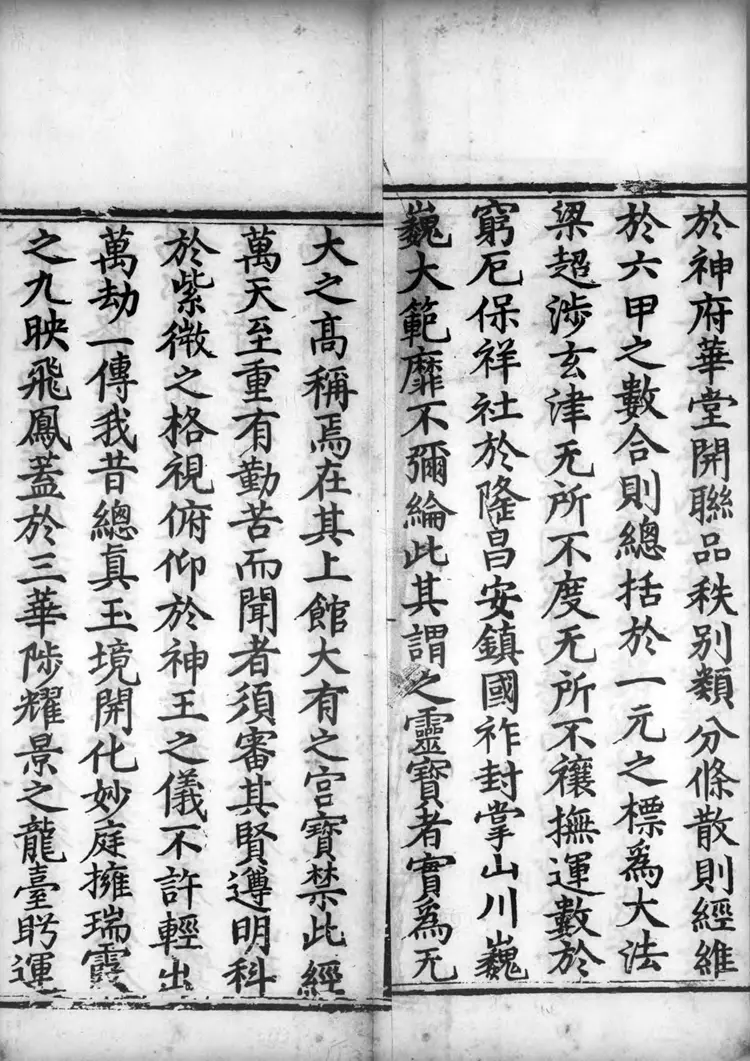 於神府華堂開聯品秩別類分條散則經維
於六甲之數合則總括於一元之標爲大法
梁超涉玄津无所不度无所不禳撫運數於
窮厄保祥社於隆昌安鎮國祚封掌山川巍
巍大範靡不彌綸此其謂之靈寶者實爲无
大之髙稱焉在其上館大有之宫寶禁此經
萬天至重有勤苦而聞者須審其賢遵明科
於紫微之格視俯仰於神王之儀不許輕出
萬劫一傳我昔總真玉境開化妙庭擁瑞霞
之九映飛鳳蓋於三華陟耀景之龍臺眄運